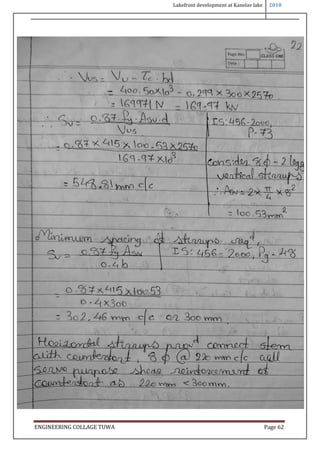 Lakefront development at Kanelav lake 2018
22
Page No.
CLASS ONE
Date
∴ Vus = Vu - Tc · bd
= 400.50×10³ - 0.299 × 300×2570
= 169971 N = 169.97 kN
∴ Sv = 0.87 fy Asv.d / Vus
IS:456-2000,
P-73
= 0.87 × 415 × 100.53 × 2570 / 169.97 × 10³
Consider 8 ϕ - 2 legged
vertical stirrups
= 548.81 mm c/c
∴ Asv = 2 × π/4 × 8²
= 100.53 mm²
Minimum spacing of stirrups reqd,
Sv = 0.87 fy Asv / 0.4 b
IS:456=2000, Pg-48
= 0.87 × 415 × 100.53 / 0.4 × 300
= 302.46 mm c/c or 300 mm.
Horizontal stirrups provd connect stem
with counterfort, 8 ϕ @ 220 mm c/c will
serve purpose shear reinforcement of
counterfort as 220 mm < 300mm.
ENGINEERING COLLAGE TUWA Page 62